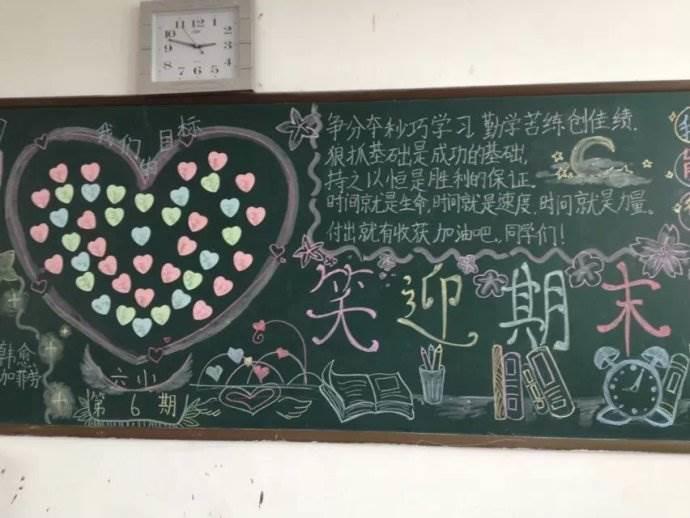 我们目标
争分夺秒巧学习,勤学苦练创佳绩.
狠抓基础是成功的基础,
持之以恒是胜利的保证.
时间就是生命,时间就是速度,时间就是力量。
付出就有收获,加油吧,同学们!
笑迎期末
韩愈
加菲劳
六小
第6期